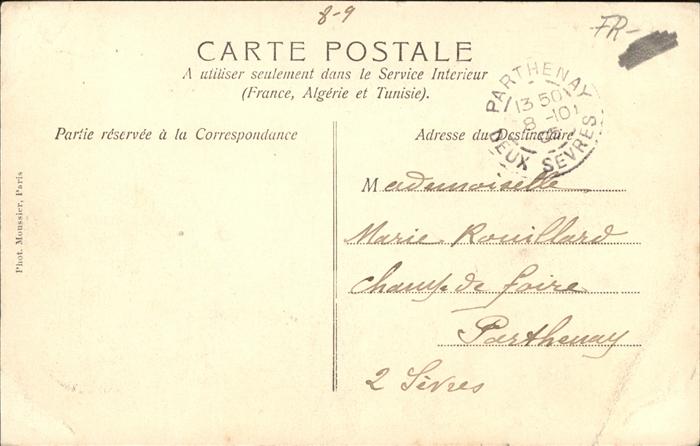 8-9
FR-
CARTE POSTALE
A utiliser seulement dans le Service Interieur
(France, Algérie et Tunisie).
PARTHENAY
13 50
8 -10
DEUX SEVRES
Partie réservée à la Correspondance
Adresse du Destinataire
Mademoiselle
Marie Rouillard
Champ de foire
Parthenay
2 Sèvres
Phot. Moussier, Paris